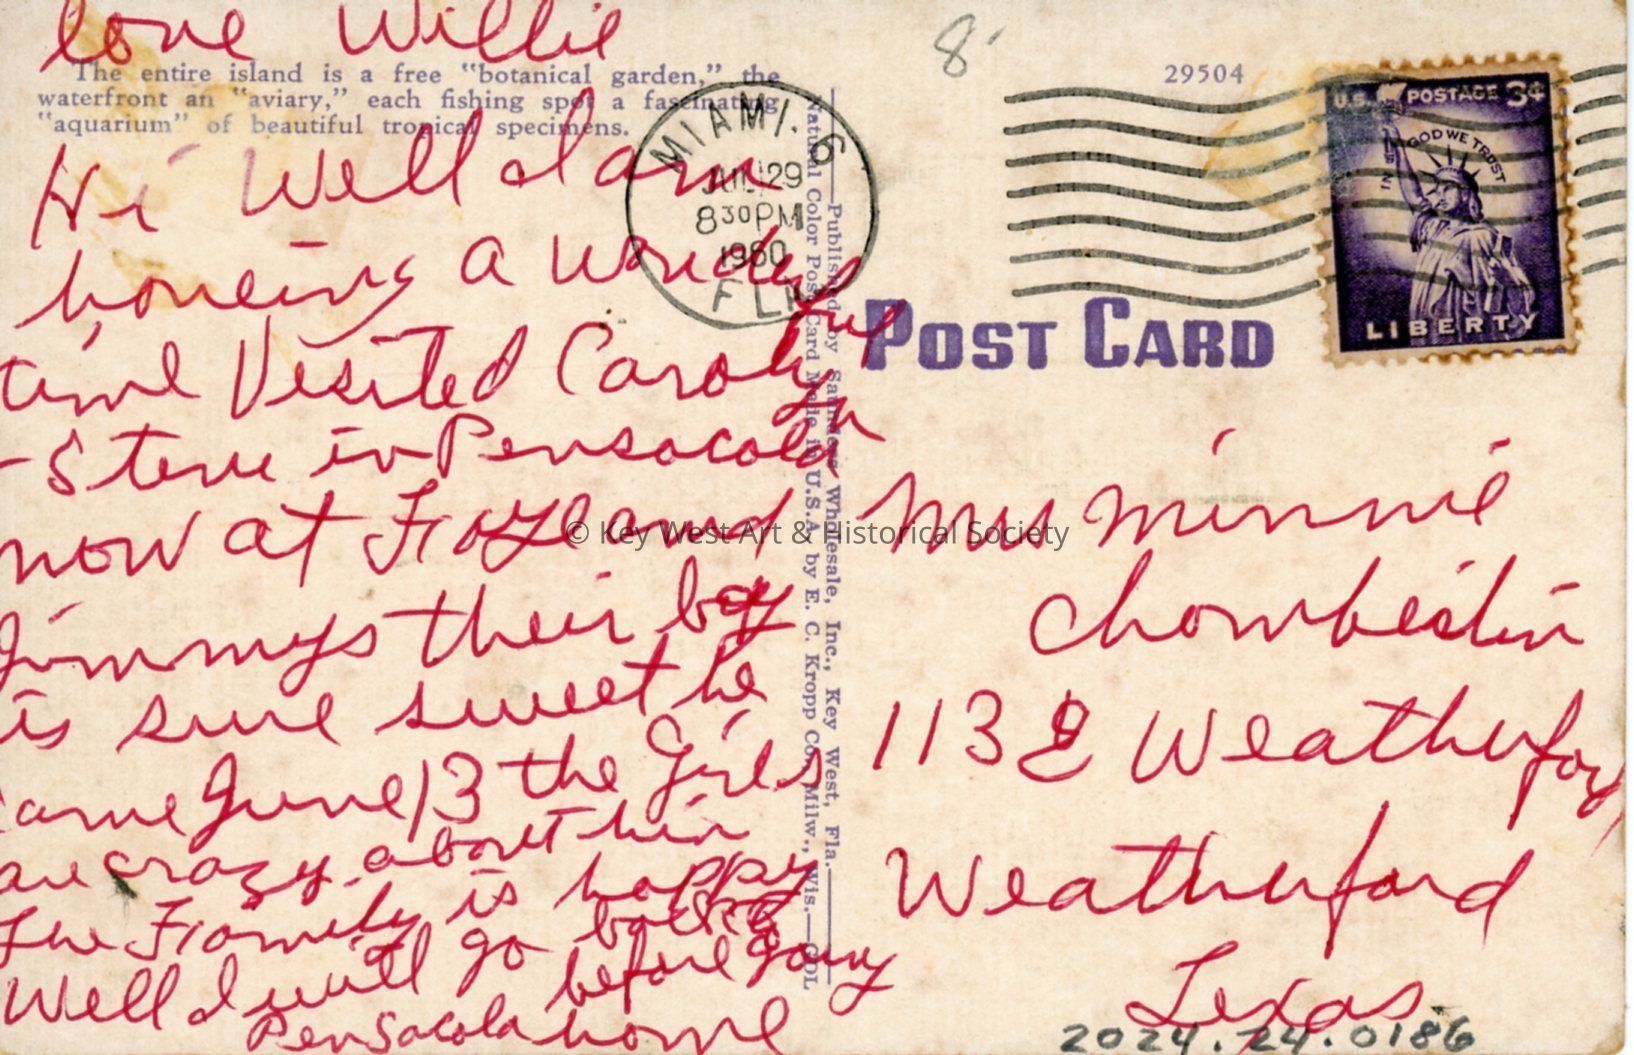 love Willie
The entire island is a free "botanical garden," the
waterfront an "aviary," each fishing spot a fascinating
"aquarium" of beautiful tropical specimens.
Hi Well I am
haveing a wonderful
time Visited Carolyn
- Steve in Pensacola
now at
Jimmys their boy
is sure sweet he
came June 13 the Girls
are crazy about him
The Family is happy
Well I will go back to
Pensacola before going
home
8
29504
MIAMI. 6
JUL 29
830PM
1960
FLA.
U.S. POSTAGE 3¢
IN GOD WE TRUST
LIBERTY
POST CARD
Published by Saunders Wholesale, Inc., Key West, Fla.
Natural Color Post Card Made in U.S.A. by E. C. Kropp Co., Milw., Wis.—GDL
© Key West Art & Historical Society
Mrs Minnie
113 E Weatherford
Weatherford
Texas
2024.24.0186